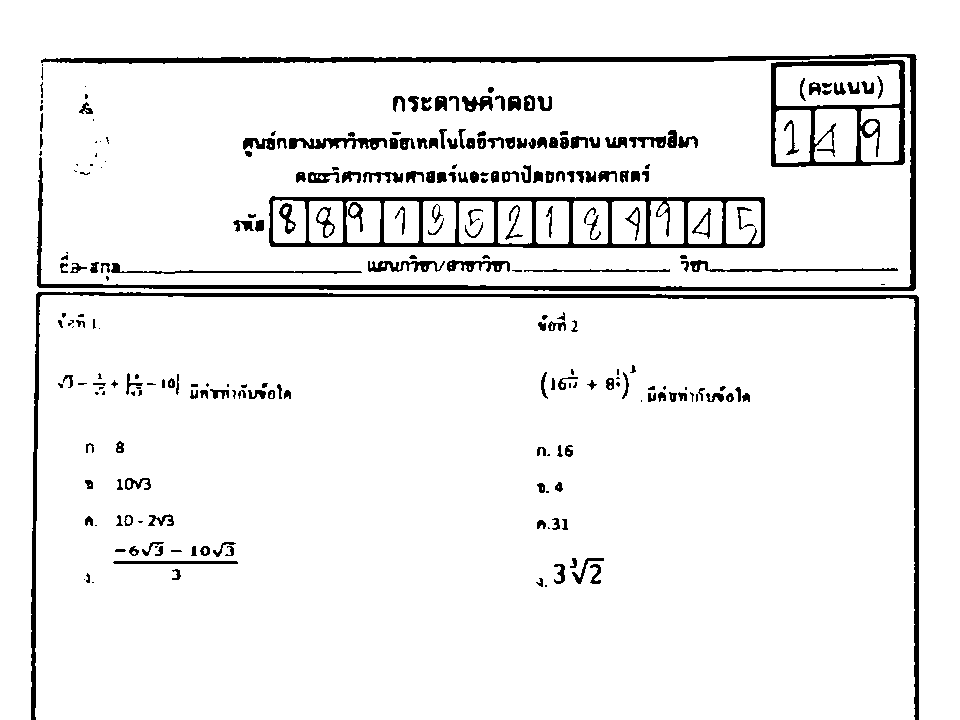 (คะแนน)
1 4 9
กระดาษคำตอบ
ศูนย์กลางมหาวิทยาลัยเทคโนโลยีราชมงคลอีสาน นครราชสีมา
คณะวิศวกรรมศาสตร์และสถาปัตยกรรมศาสตร์
รหัส 8 8 9 1 3 5 2 1 8 4 9 4 5
ชื่อ-สกุล แผนกวิชา/สาขาวิชา วิชา
ข้อที่ 1.
มีค่าเท่ากับข้อใด
ก 8
ข 10√3
ค. 10 - 2√3
ง. (-6√3 - 10√3)/3
ข้อที่ 2
มีค่าเท่ากับข้อใด
ก. 16
ข. 4
ค.31
ง. 3∛2